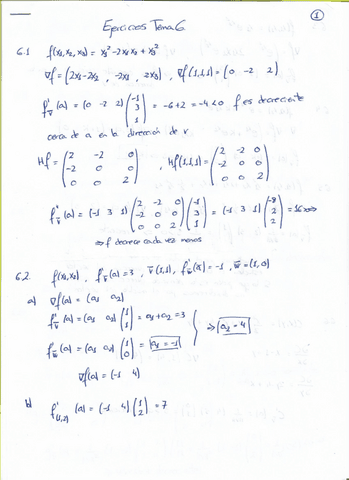 Ejercicios Tema 6
1
6.1 f(x₁,x₂,x₃) = x₁² - 2x₁x₂ + x₃²
∇f = (2x₁-2x₂, -2x₁, 2x₃), ∇f(1,1,1) = (0 -2 2)
f'v̄(a) = (0 -2 2) (-1 3 1) = -6+2 = -4 < 0 f es decreciente
cerca de a en la dirección de v
Hf = (2 -2 0; -2 0 0; 0 0 2), Hf(1,1,1) = (2 -2 0; -2 0 0; 0 0 2)
f''v̄(a) = (-1 3 1) (2 -2 0; -2 0 0; 0 0 2) (-1 3 1) = (-1 3 1) (-8 2 2) = 16 ⇒
⇒ f decrece cada vez menos
6.2 f(x₁,x₂), f'v̄(a) = 3, v̄(1,1), f'w̄(a) = -1, w̄ = (1,0)
a) ∇f(a) = (a₁ a₂)
f'v̄(a) = (a₁ a₂) (1 1) = a₁+a₂ = 3
⇒ a₂ = 4
f'w̄(a) = (a₁ a₂) (1 0) = a₁ = -1
∇f(a) = (-1 4)
b) f'(1,2)(a) = (-1 4) (1 2) = 7